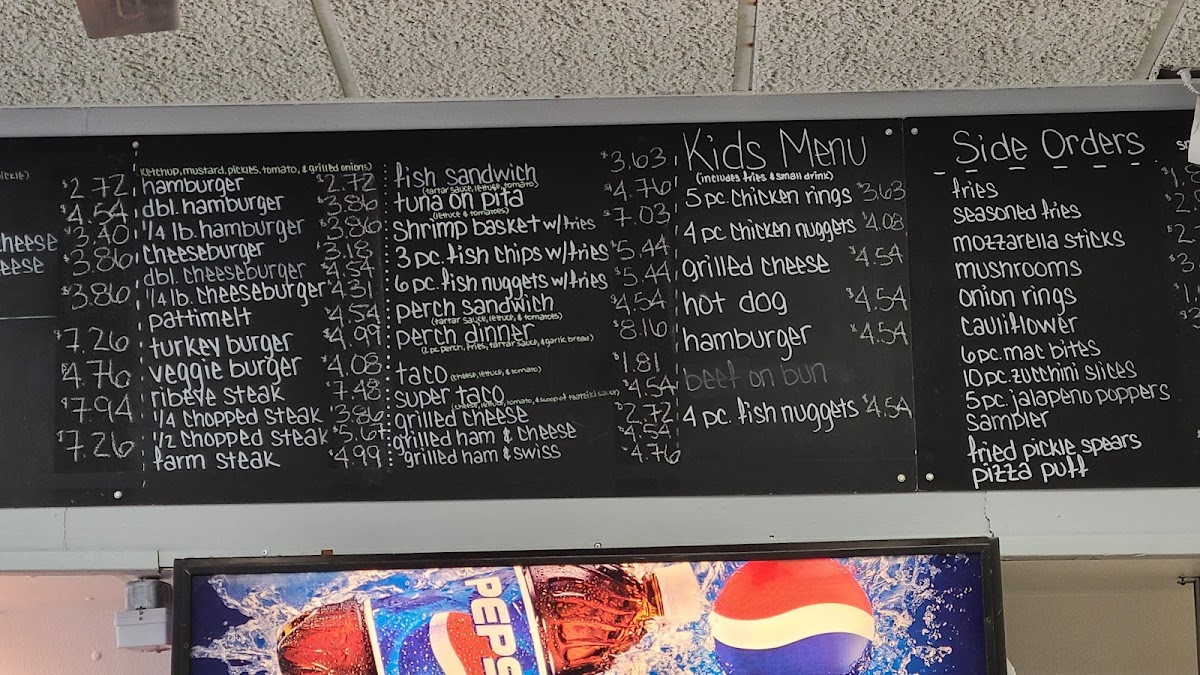 PICKLE)
$2.72
$4.54
$3.40
cheese $3.86
eese
$3.86
$7.26
$4.76
$7.94
$7.26
(Ketchup, mustard, pickles, tomato, & grilled onions)
hamburger $2.72
dbl. hamburger $3.86
1/4 lb. hamburger $3.86
cheeseburger $3.18
dbl. cheeseburger $4.54
1/4 lb. cheeseburger $4.31
pattimelt $4.54
turkey burger $4.99
veggie burger $4.08
ribeye steak $7.48
1/4 chopped steak $3.86
1/2 chopped steak $5.67
farm steak $4.99
fish sandwich $3.63
(tartar sauce, lettuce, tomato)
tuna on pita $4.76
(lettuce & tomatoes)
shrimp basket w/fries $7.03
3 pc. fish chips w/fries $5.44
6 pc. fish nuggets w/fries $5.44
perch sandwich $4.54
(tartar sauce, lettuce, & tomatoes)
perch dinner $8.16
(2 pc. perch, fries, tartar sauce, & garlic bread)
taco (cheese, lettuce, & tomato) $1.81
super taco $4.54
grilled cheese $2.72
grilled ham & cheese $4.54
grilled ham & swiss $4.76
Kids Menu
(includes fries & small drink)
5 pc. chicken rings $3.63
4 pc chicken nuggets $4.08
grilled cheese $4.54
hot dog $4.54
hamburger $4.54
beef on bun
4 pc. fish nuggets $4.54
Side Orders
fries
seasoned fries
mozzarella sticks
mushrooms
onion rings
cauliflower
6 pc. mac bites
10 pc. zucchini slices
5 pc. jalapeno poppers
sampler
fried pickle spears
pizza puff
PEPS